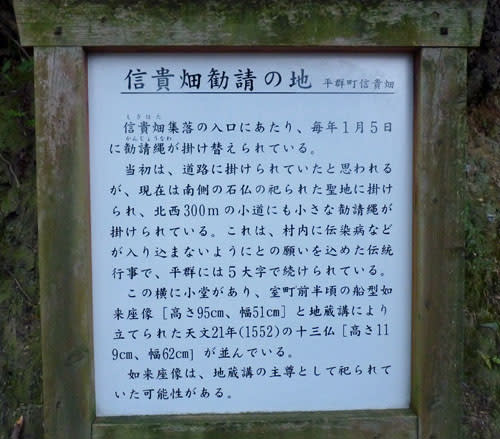 信貴畑勧請の地 平群町信貴畑
しぎはた
信貴畑集落の入口にあたり、毎年1月5日
かんじょうなわ
に勧請縄が掛け替えられている。
当初は、道路に掛けられていたと思われる
が、現在は南側の石仏の祀られた聖地に掛け
られ、北西300mの小道にも小さな勧請縄が
掛けられている。これは、村内に伝染病など
が入り込まないようにとの願いを込めた伝統
行事で、平群には5大字で続けられている。
この横に小堂があり、室町前半頃の船型如
来座像[高さ95cm、幅51cm]と地蔵講により
立てられた天文21年(1552)の十三仏[高さ11
9cm、幅62cm]が並んでいる。
如来座像は、地蔵講の主尊として祀られて
いた可能性がある。